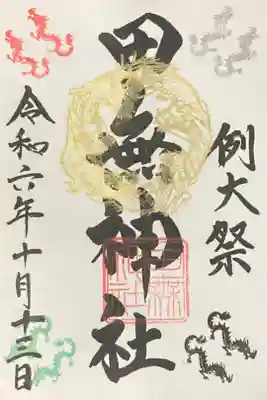 例大祭
田無神社
令和六年十月十三日